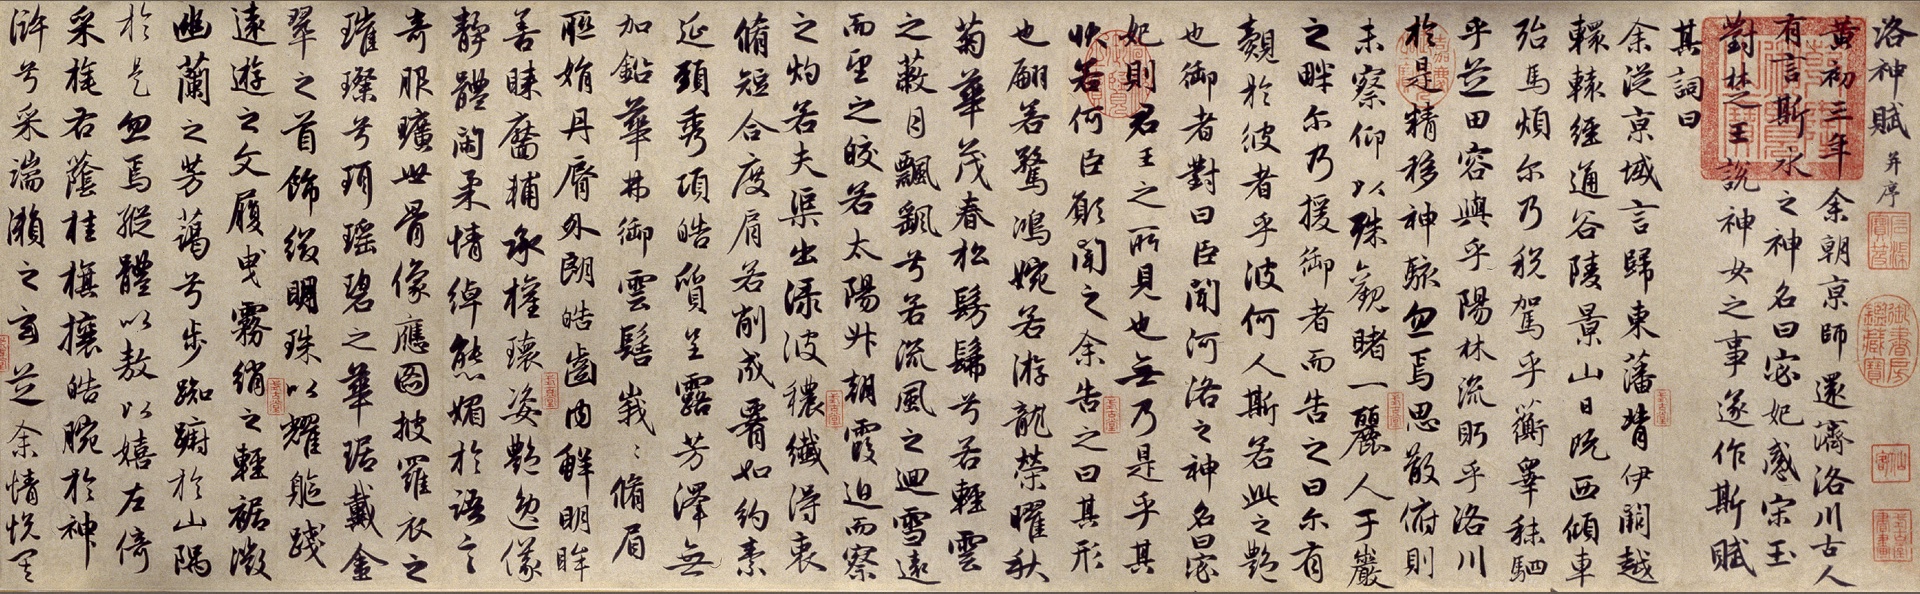 洛神賦 并序
黃初三年余朝京師還濟洛川古人
有言斯水之神名曰宓妃感宋玉
對楚王說神女之事遂作斯賦
其詞曰
余從京域言歸東藩背伊闕越
轘轅經通谷陵景山日既西傾車
殆馬煩尔乃稅駕乎蘅皋秣駟
乎芝田容與乎陽林流眄乎洛川
於是精移神駭忽焉思散俯則
未察仰以殊觀睹一麗人于巖
之畔尔乃援御者而告之曰尔有
覿於彼者乎彼何人斯若此之艷
也御者對曰臣聞河洛之神名曰宓
妃則君王之所見也無乃是乎其
狀若何臣願聞之余告之曰其形
也翩若驚鴻婉若游龍榮曜秋
菊華茂春松髣髴兮若輕雲
之蔽月飄颻兮若流風之迴雪遠
而望之皎若太陽升朝霞迫而察
之灼若夫渠出淥波穠纖得衷
脩短合度肩若削成腰如約素
延頸秀項皓質呈露芳澤無
加鉛華弗御雲髻峩〻脩眉
聯娟丹脣外朗皓齒內鮮明眸
善睞靨輔承權瓌姿艷逸儀
靜體閑柔情綽態媚於語言
奇服曠世骨像應圖披羅衣之
璀璨兮珥瑤碧之華琚戴金
翠之首飾綴明珠以耀軀踐
遠遊之文履曳霧綃之輕裾微
幽蘭之芳藹兮步踟躕於山隅
於是忽焉縱體以敖以嬉左倚
采旄右蔭桂旗攘皓腕於神
滸兮采湍瀨之玄芝余情悅其